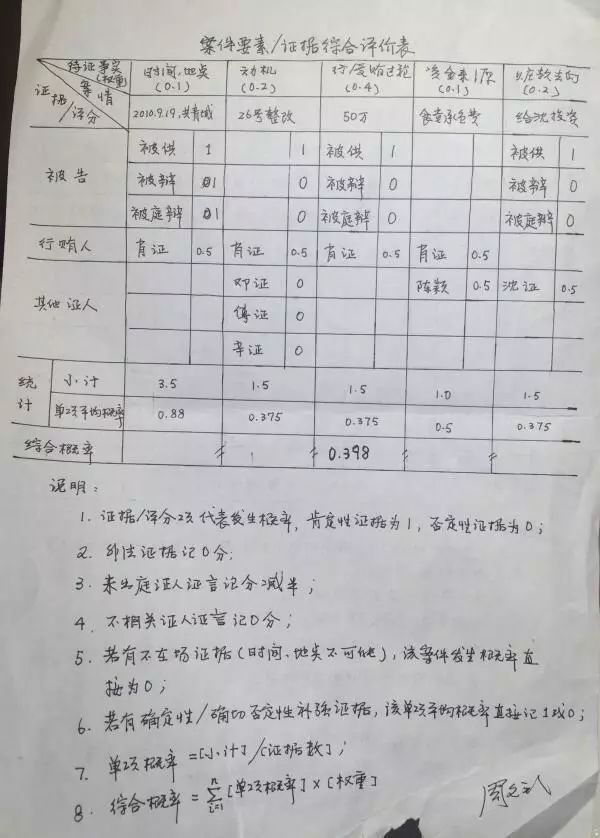 案件要素/证据综合评价表
待证事实(权重) 时间、地点(0.1) 动机(0.2) 行/受贿过程(0.4) 资金来源(0.1) (0.2)
案情
证据/评分 2010.9.19,共青城 26号整改 50万 食堂承包费 给沈投资
被告 被供 1 1 被供 1 被供 1
被辩 1 0 被辩 0 被辩 0
被庭辩 1 0 被庭辩 0 被庭辩 0
行贿人 肖证 0.5 肖证 0.5 肖证 0.5 肖证 0.5
其他证人 邓证 0 陈颖 0.5 沈证 0.5
傅证 0
辛证 0
统计 小计 3.5 1.5 1.5 1.0 1.5
单项平均概率 0.88 0.375 0.375 0.5 0.375
综合概率 0.398
说明:
1. 证据/评分项代表发生概率,肯定性证据为1,否定性证据为0;
2. 非法证据记0分;
3. 未出庭证人证言记分减半;
4. 不相关证人证言记0分;
5. 若有不在场证据(时间、地点不可能),该案件发生概率直
接为0;
6. 若有确定性/确切否定性补强证据,该单项平均概率直接记1或0;
7. 单项概率=[小计]/[证据数];
8. 综合概率=∑ⁿᵢ₌₁[单项概率]×[权重]